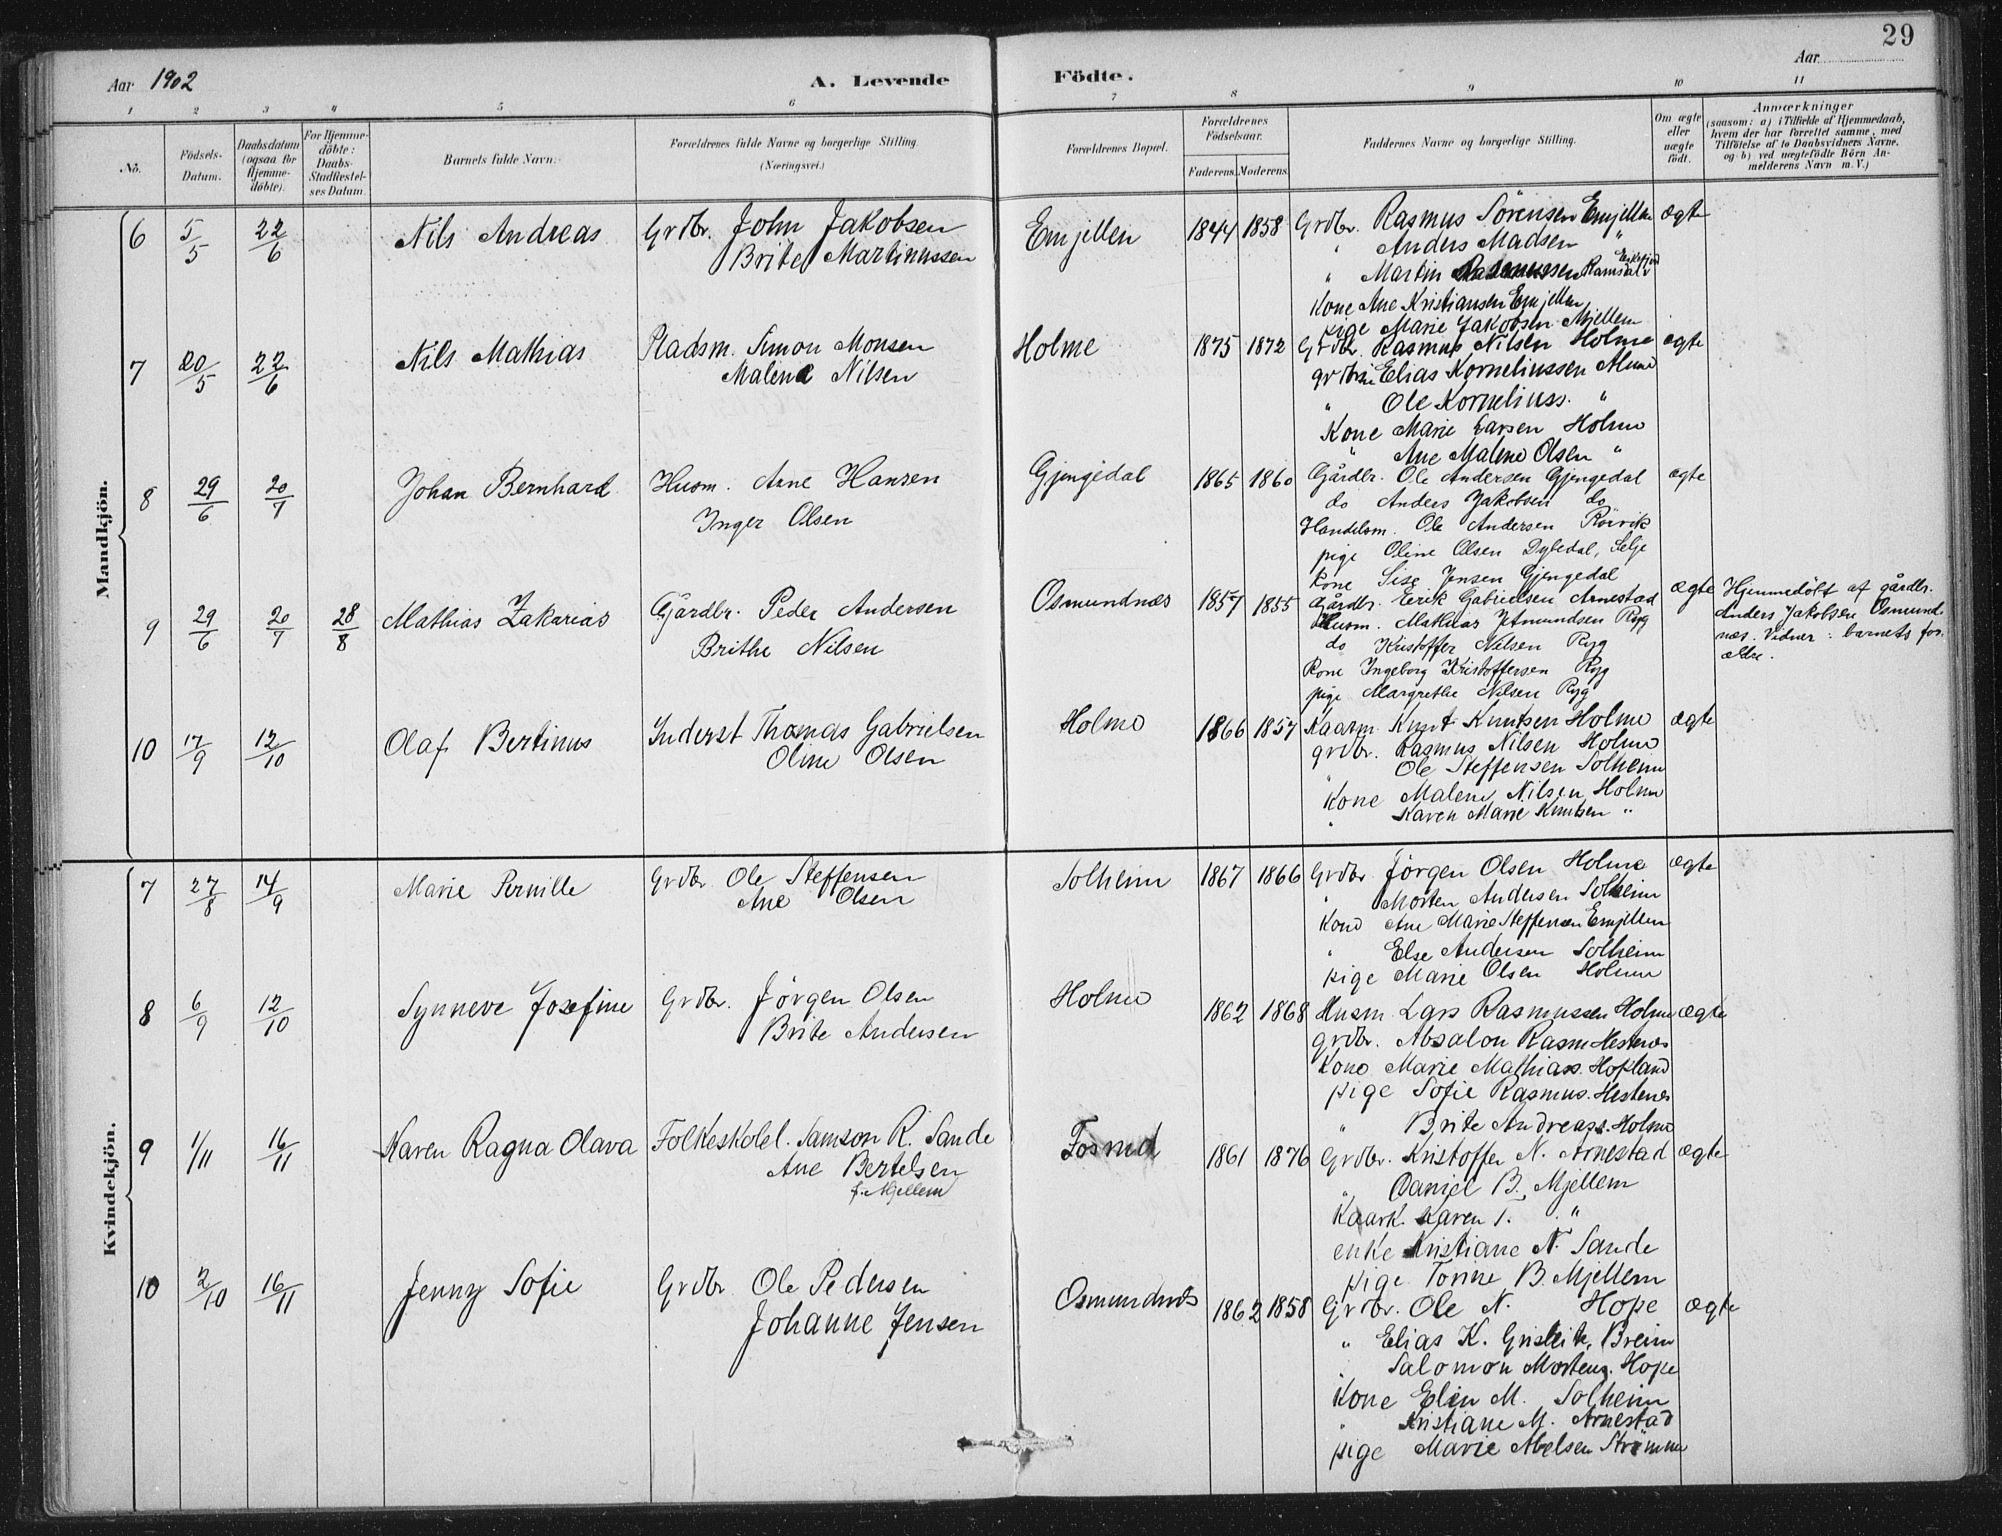 29
Aar 1902
A. Levende
Födte.
Aar
1 2 3 4 5 6 7 8 9 10 11
No.
Födsels-Datum.
Daabsdatum (ogsaa for Hjemmedöbte).
For Hjemmedöbte: Daabs-Stadfæstelses Datum.
Barnets fulde Navn.
Forældrenes fulde Navne og borgerlige Stilling. (Næringsvei.)
Forældrenes Bopæl.
Forældrenes Födselsaar.
Faderens. Moderens.
Faddernes Navne og borgerlige Stilling.
Om ægte eller uægte födt.
Anmærkninger
(saasom: a) i Tilfælde af Hjemmedaab, hvem der har forrettet samme, med Tilföielse af to Daabsvidners Navne, og b) ved uægtefödte Börn Anmelderens Navn m. V.)
Mandkjön.
6 5/5 22/6 Nils Andreas Grdbr. John Jakobsen Emjellen 1844 1858 Grdbr. Rasmus Sörensen Emjellen ægte
Brite Martinussen " Anders Madsen "
" Martin Rasmussen Ramsdal Eikefjord
Kone Ane Kristiansen Emjellen
pige Marie Jakobsen Mjellem
7 20/5 22/6 Nils Mathias Pladsm. Simon Monsen Holme 1875 1872 Grdbr. Rasmus Nilsen Holme ægte
Malene Nilsen grdbr. Elias Korneliussen Alme
" Ole Korneliuss. "
Kone Marie Larsen Holme
" Ane Malene Olsen "
8 29/6 20/7 Johan Bernhard Husm. Arne Hansen Gjengedal 1865 1860 Gårdbr. Ole Andersen Gjengedal ægte
Inger Olsen do Anders Jakobsen do
Handelsm. Ole Andersen Röirvik
pige Oline Olsen Dybedal, Selje
kone Sise Jensen Gjengedal
9 29/6 20/7 28/8 Mathias Zakarias Gårdbr. Peder Andersen Osmundnæs 1857 1855 Gårdbr. Eerik Gabrielsen Arnestad ægte Hjemmedöbt af gårdbr.
Brithe Nilsen Husm. Mathias Jetmundsen Ryg Anders Jakobsen Osmund-
do Kristoffer Nilsen Ryg næs. Vidner: barnets for-
Kone Ingeborg Kristoffersen Ryg ældre.
pige Margrethe Nilsen Ryg
10 17/9 12/10 Olaf Bertinus Inderst Thomas Gabrielsen Holme 1866 1857 Kaarm. Knut Knutsen Holme ægte
Oline Olsen grdbr. Rasmus Nilsen Holme
" Ole Steffensen Solheim
Kone Malene Nilsen Holme
" Karen Marie Knutsen "
Kvindekjön.
7 27/8 14/9 Marie Pernille Grdbr. Ole Steffensen Solheim 1867 1866 Grdbr. Jörgen Olsen Holme ægte
Ane Olsen " Morten Andersen Solheim
Kone Ane Marie Steffensen Emjellem
" Else Andersen Solheim
pige Marie Olsen Holme
8 6/9 12/10 Synneve Josefine Grdbr. Jörgen Olsen Holme 1862 1868 Husm. Lars Rasmussen Holme ægte
Brite Andersen grdbr. Absalon Rasm. Hestenes
Kone Marie Mathias. Hopland
pige Sofie Rasmus. Hestenes
" Brite Andreas. Holme
9 1/11 16/11 Karen Ragna Olava Folkeskolel. Samson R. Sande Fosmd 1861 1876 Grdbr. Kristoffer N. Arnestad ægte
Ane Bertelsen " Daniel B. Mjellem
f. Mjellem Kaark. Karen T. "
enke Kristiane N. Sande
pige Torine B. Mjellem
10 2/10 16/11 Jenny Sofie Grdbr Ole Pedersen Osmundnæs 1862 1858 Grdbr. Ole N. Hope ægte
Johanne Jensen " Elias K. Breim
Salomon Mortens. Hope
Kone Elin M. Solheim
" Kristiane M. Arnestad
pige Marie Abelsen Strömme